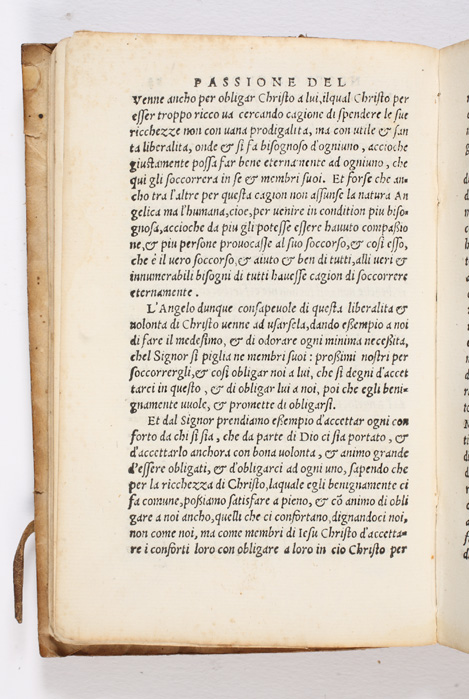 PASSIONE DEL
Venne ancho per obligar Christo a lui, ilqual Christo per
esser troppo ricco ua cercando cagione di spendere le sue
ricchezze non con uana prodigalita, ma con utile & san
ta liberalita, onde & si fa bisognoso d'ogniuno, accioche
giustamente possa far bene eternamente ad ogniuno, che
qui gli soccorrera in se & membri suoi. Et forse che an-
cho tra l'altre per questa cagion non assunse la natura An
gelica ma l'humana, cioe, per uenire in condition piu biso-
gnosa, accioche da piu gli potesse essere hauuto compassio
ne, & piu persone prouocasse al suo soccorso, & cosi esso,
che è il uero soccorso, & aiuto & ben di tutti, alli ueri &
innumerabili bisogni di tutti hauesse cagion di soccorrere
eternamente.
L'Angelo dunque consapeuole di questa liberalita &
uolonta di Christo uenne ad usarsela, dando essempio a noi
di fare il medesimo, & di odorare ogni minima necessita,
chel Signor si piglia ne membri suoi: prossimi nostri per
soccorrergli, & cosi obligar noi a lui, che si degni d'accet
tarci in questo, & di obligar lui a noi, poi che egli beni-
gnamente uuole, & promette di obligarsi.
Et dal Signor prendiamo essempio d'accettar ogni con
forto da chi si sia, che da parte di Dio ci sia portato, &
d'accettarlo anchora con bona uolonta, & animo grande
d'essere obligati, & d'obligarci ad ogni uno, sapendo che
per la ricchezza di Christo, laquale egli benignamente ci
fa comune, possiamo satisfare a pieno, & cō animo di obli
gare a noi ancho, quelli che ci confortano, dignandoci noi,
non come noi, ma come membri di Iesu Christo d'accetta-
re i conforti loro con obligare a loro in cio Christo per